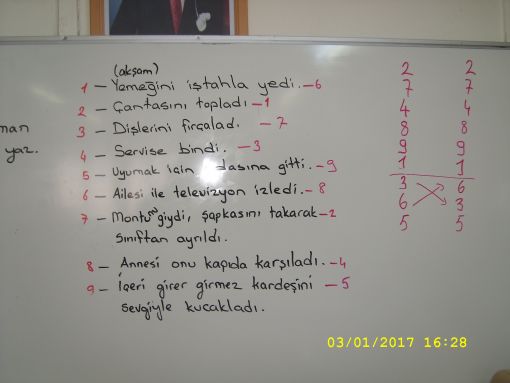 (akşam)
1 - Yemeğini iştahla yedi. - 6
2 - Çantasını topladı - 1
3 - Dişlerini fırçaladı - 7
man
yaz.
4 - Servise bindi. - 3
5 - Uyumak için odasına gitti. - 9
6 - Ailesi ile televizyon izledi. - 8
7 - Montunu giydi, şapkasını takarak - 2
sınıftan ayrıldı.
8 - Annesi onu kapıda karşıladı. - 4
9 - İçeri girer girmez kardeşini - 5
sevgiyle kucakladı.
2 2
7 7
4 4
8 8
9 9
1 1
3 6
6 3
5 5
03/01/2017 16:28